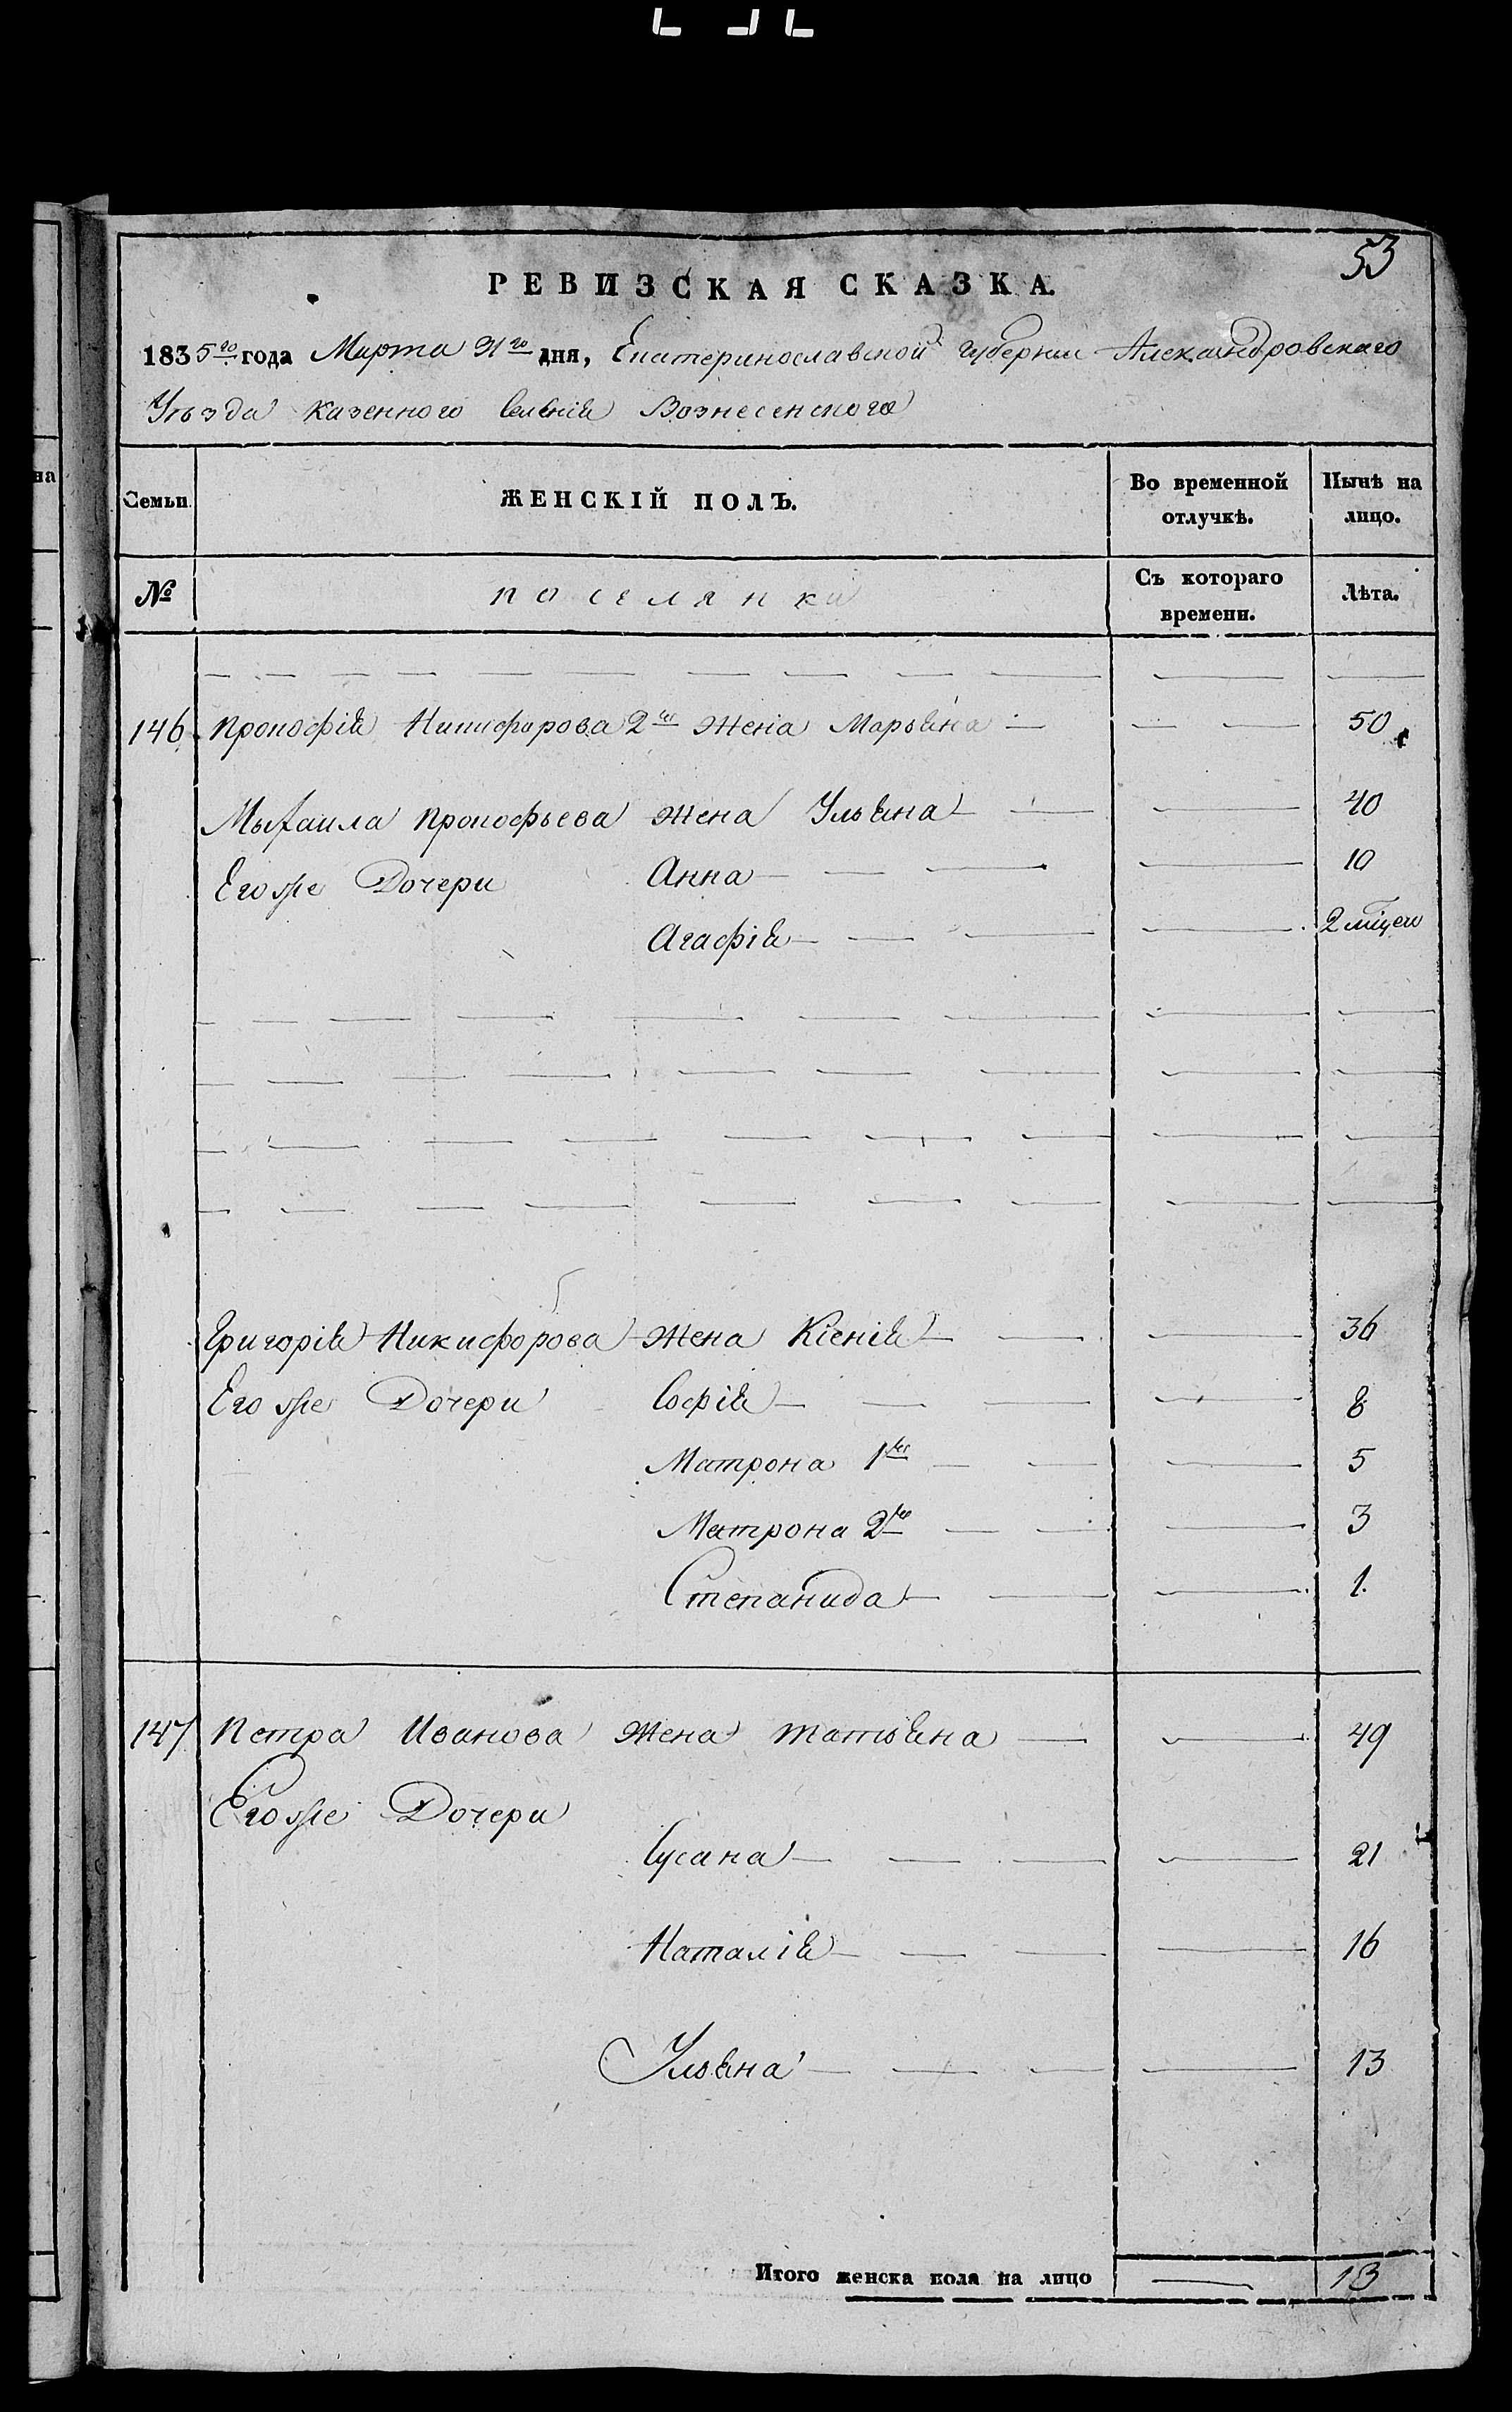 53
РЕВИЗСКАЯ СКАЗКА.
1835го года Марта 31го дня, Екатеринославской Губернии Александровскаго
Уѣзда казенного селенія Вознесенского
Семьи ЖЕНСКІЙ ПОЛЪ. Во временной отлучкѣ. Нынѣ на лицо.
№ поселянки Съ котораго времени. Лѣта.
146 Прокофія Никифорова 2я жена Марьяна 50
Мыхаила Прокофьева жена Ульяна 40
Егоже Дочери Анна 10
Агафія 2 мѣцей
Григорія Никифорова жена Ксенія 36
Егоже Дочери Софія 8
Матрона 1я 5
Матрона 2я 3
Степанида 1.
147 Петра Иванова жена Татьяна 49
Егоже Дочери
Сусана 21
Наталія 16
Ульяна 13
Итого женска пола на лицо 13
на